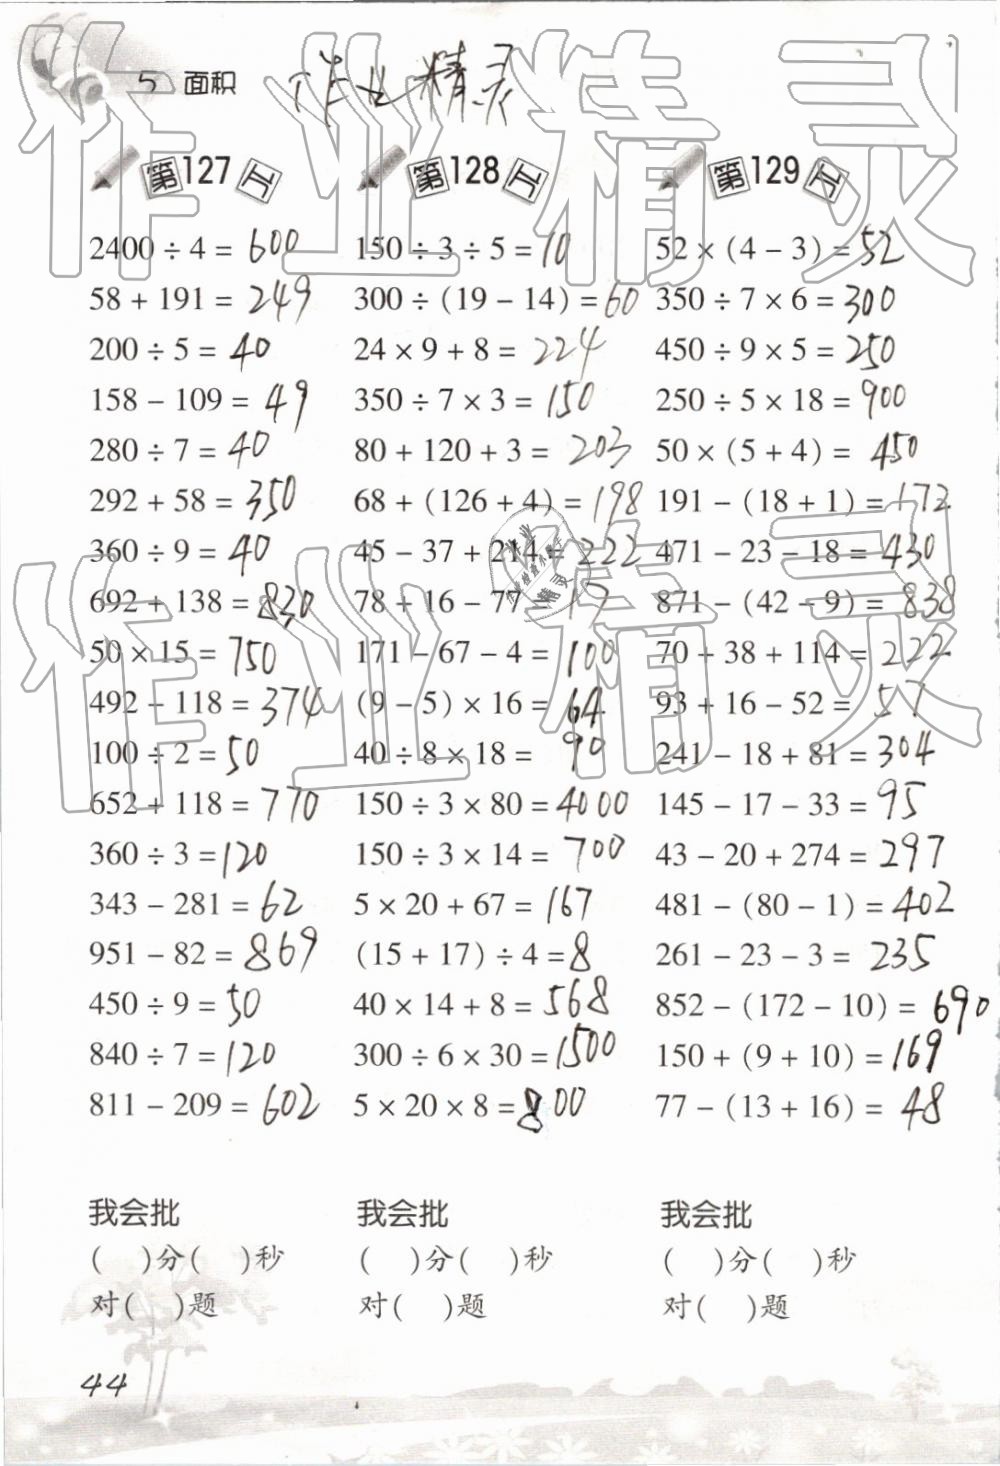 5 面积
作业精灵
第127 第128 第129
2400 ÷ 4 = 600
58 + 191 = 249
200 ÷ 5 = 40
158 − 109 = 49
280 ÷ 7 = 40
292 + 58 = 350
360 ÷ 9 = 40
692 + 138 = 830
50 × 15 = 750
492 − 118 = 374
100 ÷ 2 = 50
652 + 118 = 770
360 ÷ 3 = 120
343 − 281 = 62
951 − 82 = 869
450 ÷ 9 = 50
840 ÷ 7 = 120
811 − 209 = 602
我会批
(  )分(  )秒
对(  )题
150 ÷ 3 ÷ 5 = 10
300 ÷ (19 − 14) = 60
24 × 9 + 8 = 224
350 ÷ 7 × 3 = 150
80 + 120 + 3 = 203
68 + (126 + 4) = 198
45 − 37 + 214 = 222
78 + 16 − 77 = 17
171 − 67 − 4 = 100
(9 − 5) × 16 = 64
40 ÷ 8 × 18 = 90
150 ÷ 3 × 80 = 4000
150 ÷ 3 × 14 = 700
5 × 20 + 67 = 167
(15 + 17) ÷ 4 = 8
40 × 14 + 8 = 568
300 ÷ 6 × 30 = 1500
5 × 20 × 8 = 800
我会批
(  )分(  )秒
对(  )题
52 × (4 − 3) = 52
350 ÷ 7 × 6 = 300
450 ÷ 9 × 5 = 250
250 ÷ 5 × 18 = 900
50 × (5 + 4) = 450
191 − (18 + 1) = 172
471 − 23 − 18 = 430
871 − (42 − 9) = 838
70 + 38 + 114 = 222
93 + 16 − 52 = 57
241 − 18 + 81 = 304
145 − 17 − 33 = 95
43 − 20 + 274 = 297
481 − (80 − 1) = 402
261 − 23 − 3 = 235
852 − (172 − 10) = 690
150 + (9 + 10) = 169
77 − (13 + 16) = 48
我会批
(  )分(  )秒
对(  )题
44
作业精灵
作业精灵